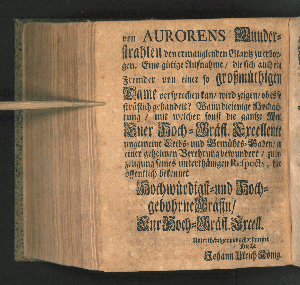 von AURORENS Wunder-
strahlen den ermanglenden Glantz zu erbor-
gen. Eine gütige Aufnahme / die sich auch ein
Fremder von einer so großmüthigen
Dame versprechen kan / wird zeigen / ob es
sträflich gehandelt? Wann diejenige Hochach-
tung / mit welcher sonst die gantze Welt
Euer Hoch-Gräfl. Excellentz
ungemeine Leibs- und Gemüths-Gaben / in
einer geheimen Verehrung bewundert /
seines unterthänigen Respects,
öffentlich bekennet
Hochwürdigst- und Hoch-
gebohrne Gräfin /
Eur Hoch-Gräfl. Excell.
Johann Ulrich König.